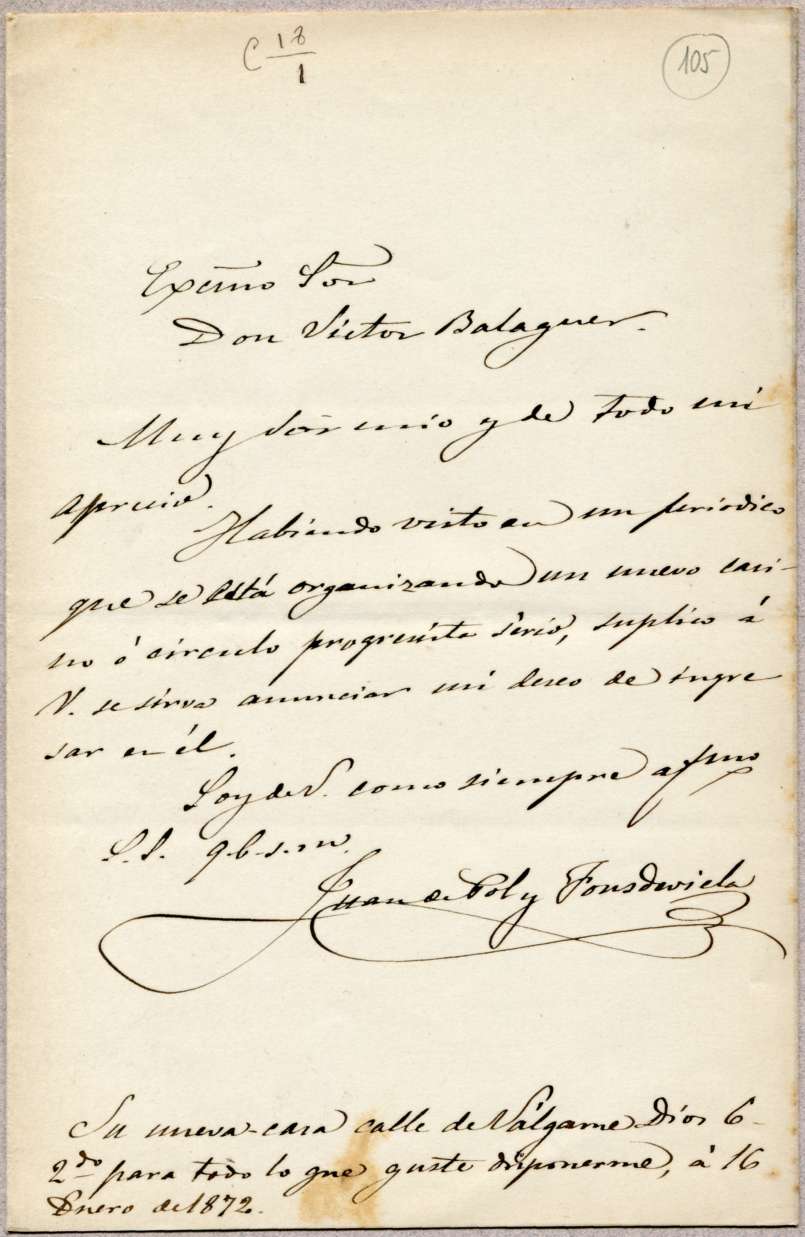 C 18/1
105
Excmo Sor
Don Victor Balaguer.
Muy Sor mio y de todo mi
aprecio.
Habiendo visto en un periodico
que se está organizando un nuevo casi-
no ó circulo progresista sério, suplico á
V. se sirva anunciar mi deseo de ingre
sar en él.
Soy de V. como siempre afmo
S. S. q. b. s. m.
Juan de Pol y Fonsdeviela
Su nueva casa calle de Válgame Dios 6
2do para todo lo que guste disponerme, á 16
Enero de 1872.